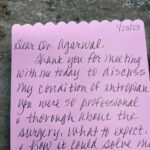 1/25/23
Dear Dr. Agarwal,
Thank you for meeting
with me today to discuss
my condition of entropian.
You were so professional
& thorough about the
surgery, what to expect
& how it could solve my